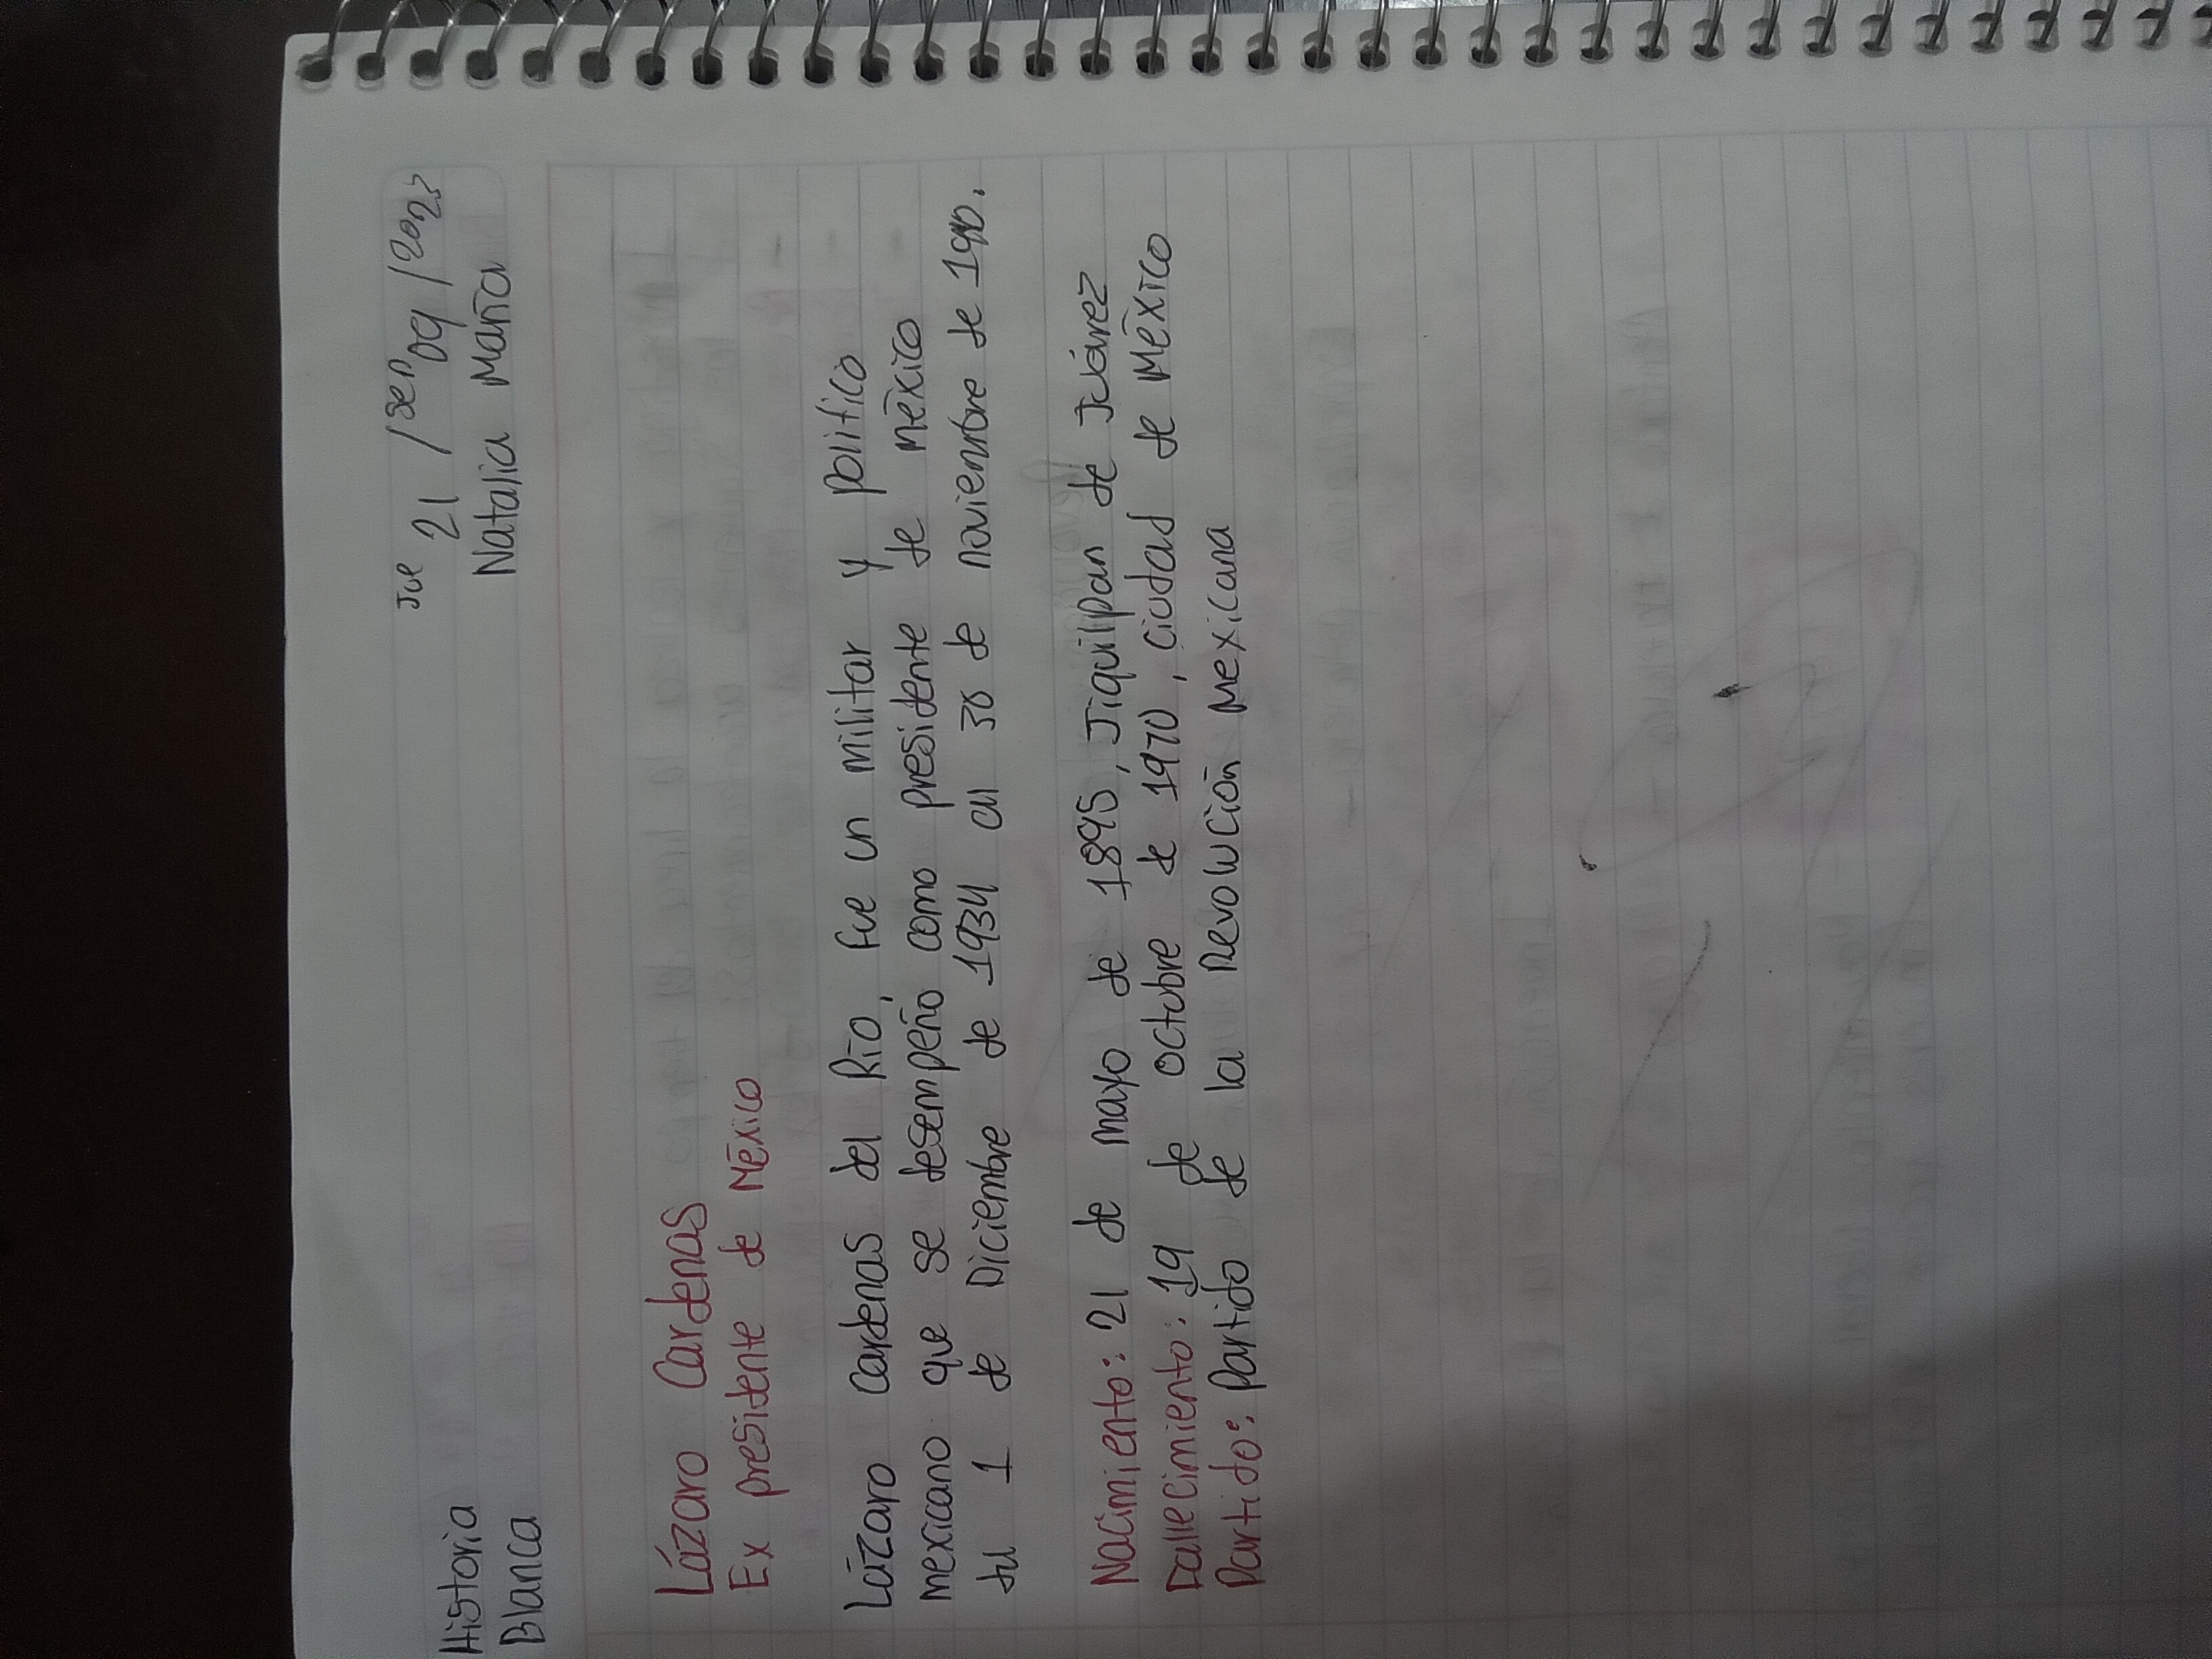 Historia
Blanca
Jue 21 / Sep 09 / 2023
Natalia María
Lázaro Cardenas
Ex presidente de México
Lázaro Cardenas del Río, fue un militar y politico
mexicano que se desempeño como presidente de méxico
del 1 de Diciembre de 1934 al 30 de noviembre de 1940.
Nacimiento: 21 de mayo de 1895, Jiquilpan de Juárez
Fallecimiento: 19 de octubre de 1970, Ciudad de México
Partido: Partido de la Revolución Mexicana